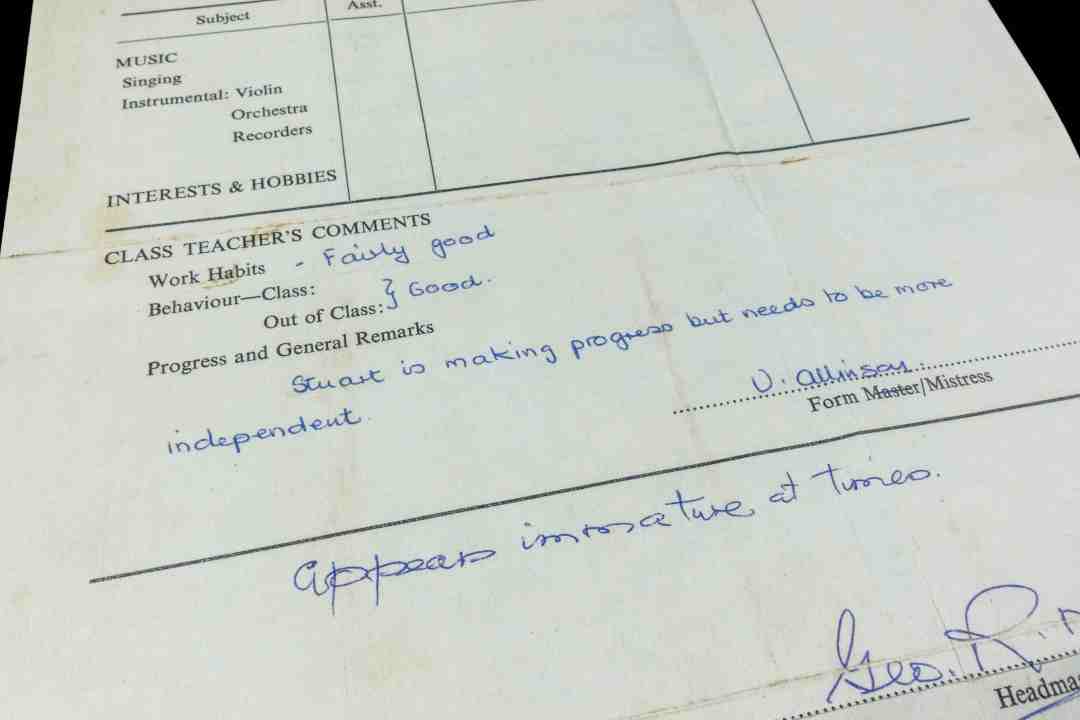 Subject Asst.
MUSIC
Singing
Instrumental: Violin
Orchestra
Recorders
INTERESTS & HOBBIES
CLASS TEACHER'S COMMENTS
Work Habits - Fairly good
Behaviour—Class:
Out of Class: } Good.
Progress and General Remarks
Stuart is making progress but needs to be more
independent.
V. Allinson
Form Master/Mistress
Appears immature at times.
Geo. R.
Headma